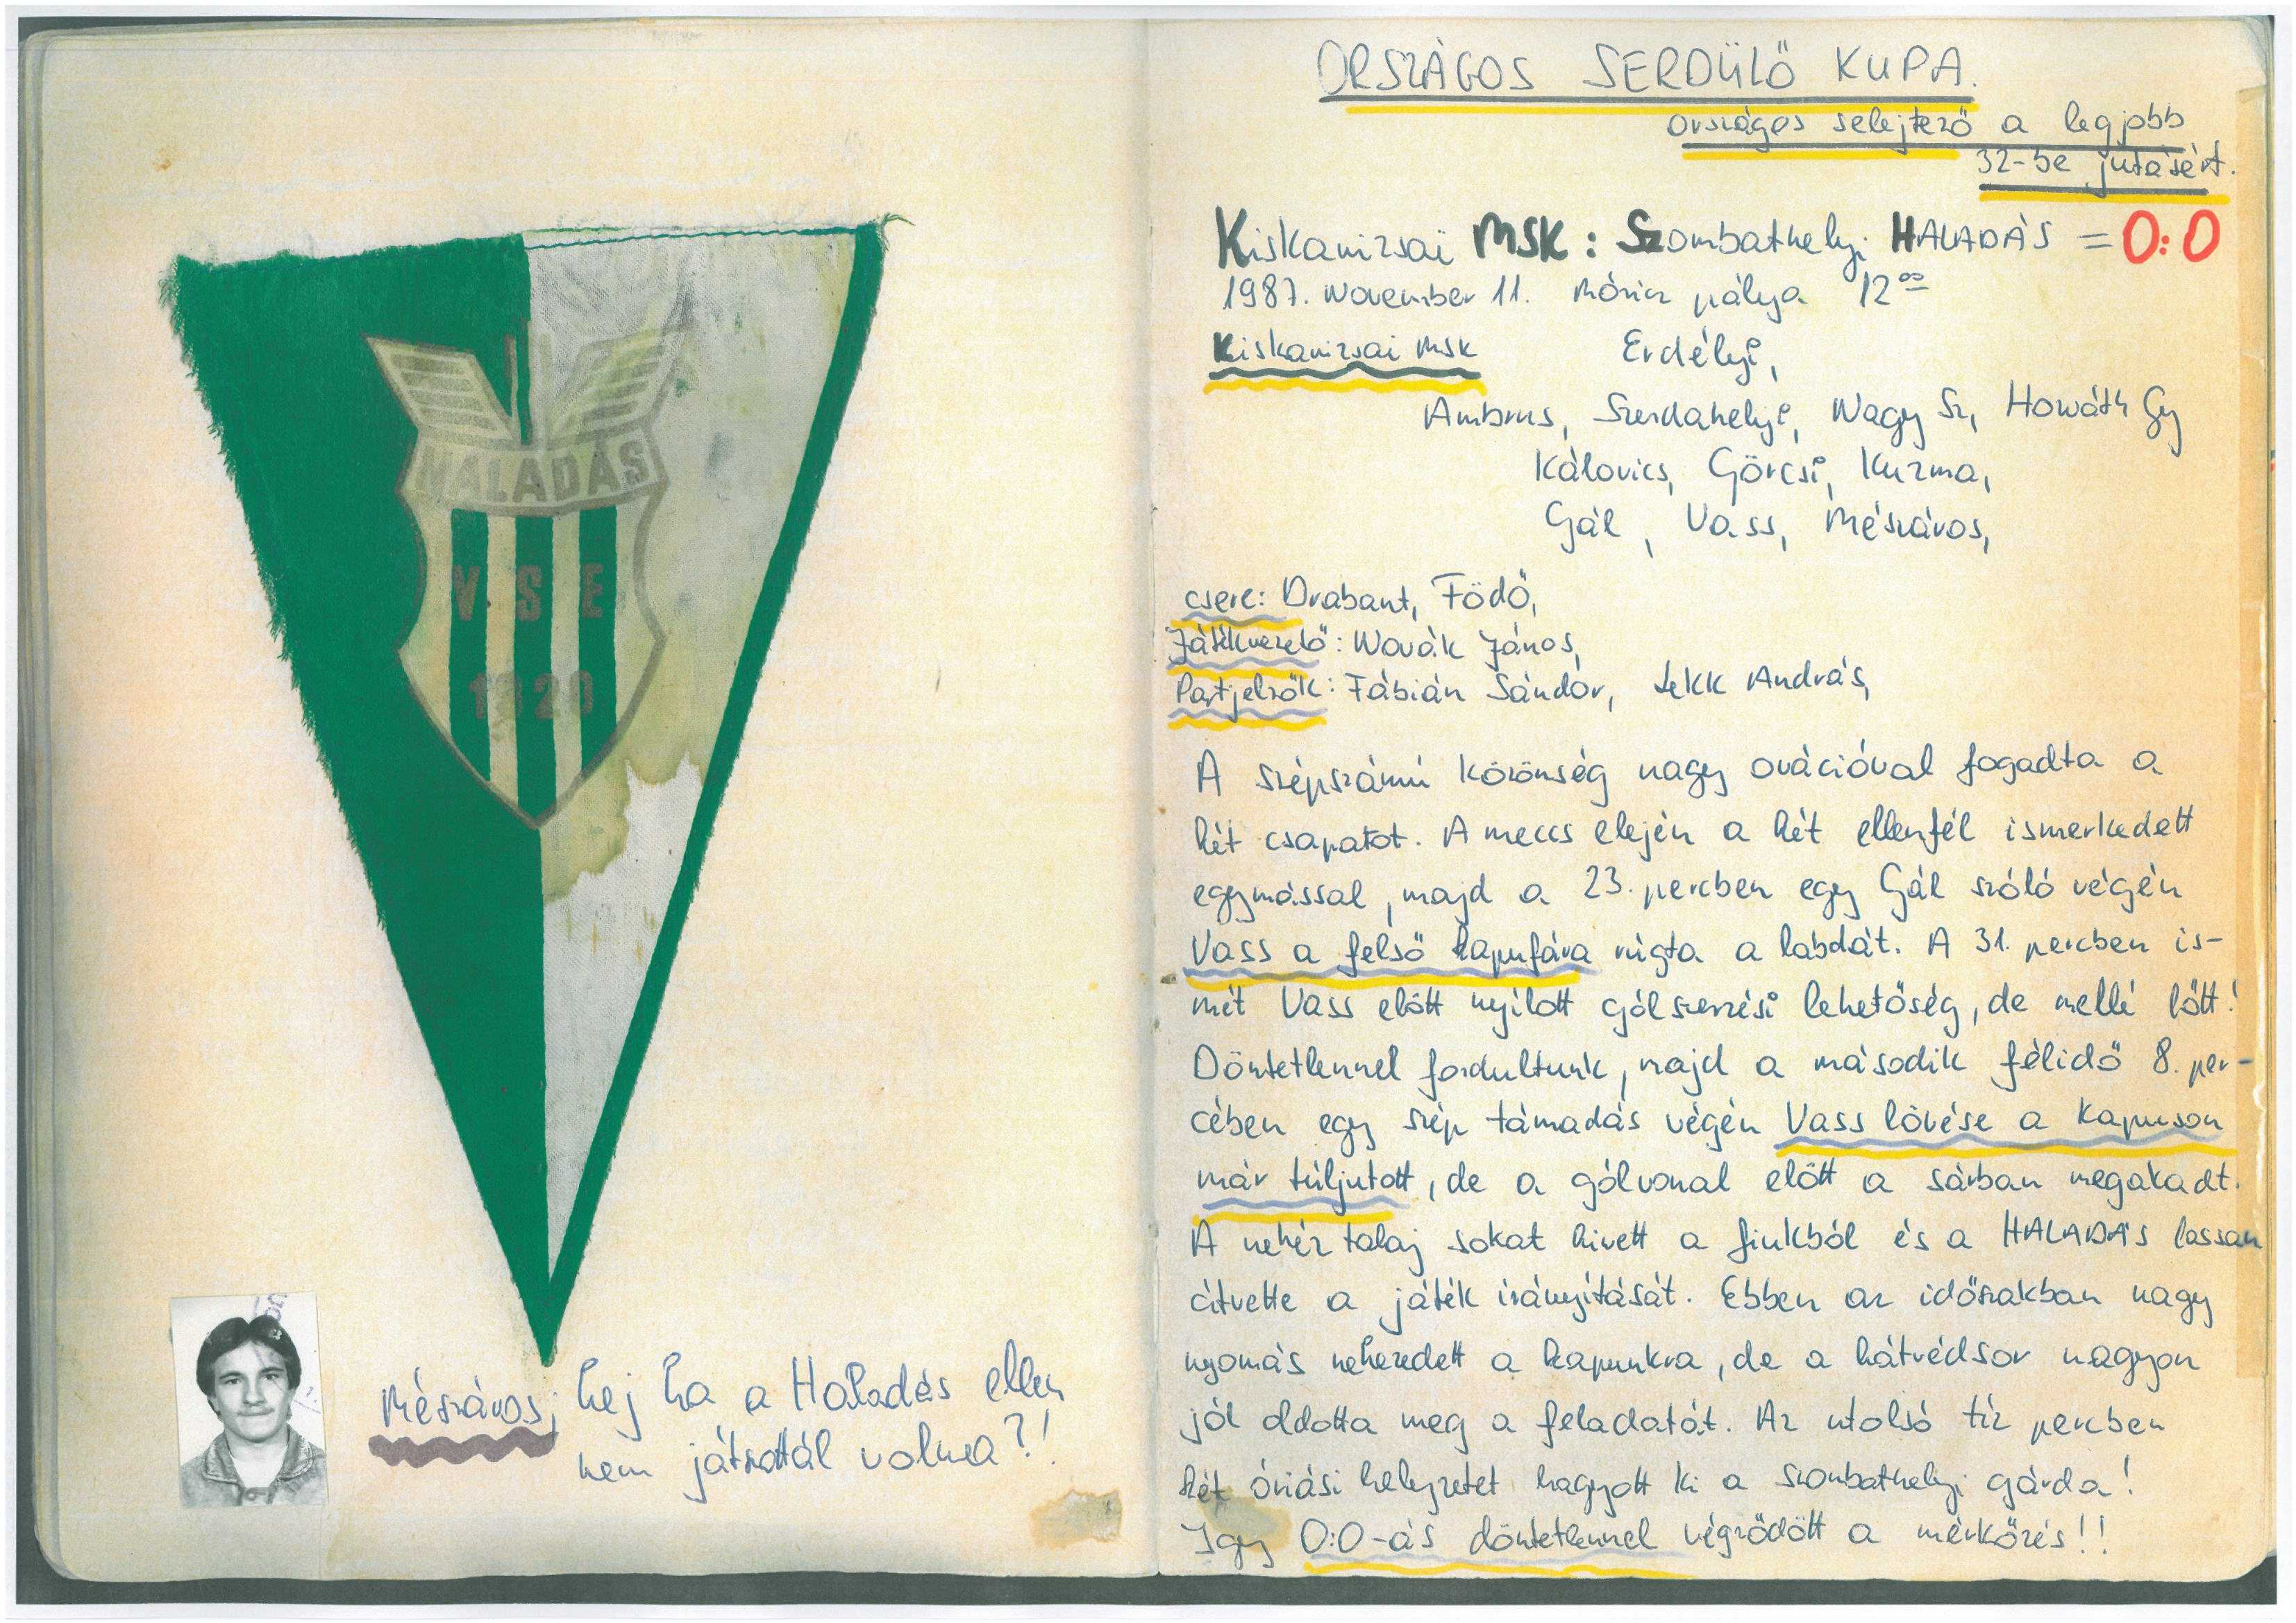 HALADÁS
V. S E
1920
Mészáros; hej ha a Haladás ellen
nem játszottál volna?!
ORSZÁGOS SERDÜLŐ KUPA.
országos selejtező a legjobb
32-be jutásért.
Kiskanizsai MSK : Szombathelyi HALADÁS = 0:0
1987. November 11. Móricz pálya 12⁰⁰
Kiskanizsai MSK Erdélyi,
Ambrus, Szerdahelyi, Nagy Sz, Horváth Gy
Kálovics, Görcsi, Kuzma,
Gál, Vass, Mészáros,
csere: Drabant, Födő,
Játékvezető: Novák János,
Partjelzők: Fábián Sándor, Lekk András,
A szépszámú közönség nagy ovációval fogadta a
két csapatot. A meccs elején a két ellenfél ismerkedett
egymással, majd a 23. percben egy Gál szóló végén
Vass a felső kapufára rúgta a labdát. A 31. percben is-
mét Vass előtt nyílott gólszerzési lehetőség, de mellé lőtt!
Döntetlennel fordultunk, majd a második félidő 8. per-
cében egy szép támadás végén Vass lövése a kapuson
már túljutott, de a gólvonal előtt a sárban megakadt.
A nehéz talaj sokat kivett a fiukból és a HALADÁS lassan
átvette a játék irányítását. Ebben az időszakban nagy
nyomás nehezedett a kapunkra, de a hátvédsor nagyon
jól oldotta meg a feladatát. Az utolsó tíz percben
két óriási helyzetet hagyott ki a szombathelyi gárda!
Igy 0:0-ás döntetlennel végződött a mérkőzés!!